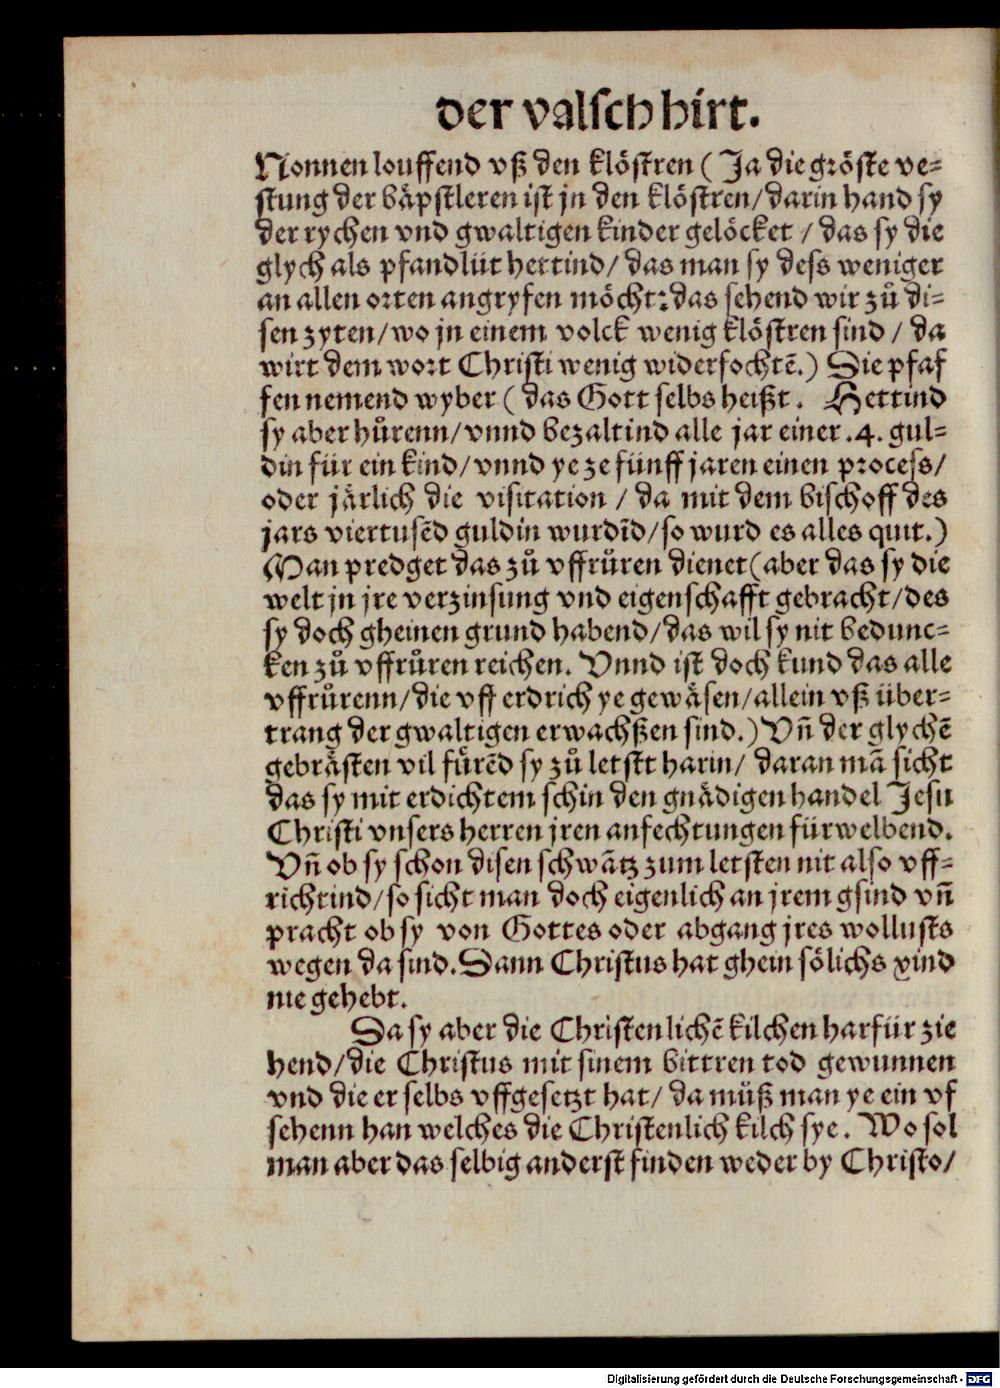 der valsch hirt.
Nonnen louffend vß den klöstren (Ja die gröste ve⸗
stung der bäpstleren ist jn den klöstren/darin hand sy
der rychen vnd gwaltigen kinder gelöcket / das sy die
glych als pfandlüt hettind/ das man sy dess weniger
an allen orten angryfen möcht: das sehend wir zů di⸗
sen zyten/wo jn einem volck wenig klöstren sind / da
wirt dem wort Christi wenig widerfochtē.) Die pfaf
fen nemend wyber ( das Gott selbs heißt. Hettind
sy aber hůrenn/vnnd bezaltind alle jar einer .4. gul⸗
din für ein kind/vnnd ye ze fünff jaren einen process/
oder järlich die visitation / da mit dem bischoff des
jars viertusēd guldin wurdīd/so wurd es alles quit.)
Man predget das zů vffrůren dienet(aber das sy die
welt jn jre verzinsung vnd eigenschafft gebracht/des
sy doch gheinen grund habend/das wil sy nit bedunc⸗
ken zů vffrůren reichen. Vnnd ist doch kund das alle
vffrůrenn/die vff erdrich ye gewäsen/allein vß über⸗
trang der gwaltigen erwachßen sind.) Vn̄ der glychē
gebrästen vil fürēd sy zů letstt harin/ daran mā sicht
das sy mit erdichtem schin den gnädigen handel Jesu
Christi vnsers herren jren anfechtungen fürwelbend.
Vn̄ ob sy schon disen schwātz zum letsten nit also vff⸗
richtind/so sicht man doch eigenlich an jrem gsind vn̄
pracht ob sy von Gottes oder abgang jres wollusts
wegen da sind. Dann Christus hat ghein sölichs xind
nie gehebt.
Da sy aber die Christenlichē kilchen harfür zie
hend/die Christus mit sinem bittren tod gewunnen
vnd die er selbs vffgesetzt hat/ da müß man ye ein vf
sehenn han welches die Christenlich kilch sye. Wo sol
man aber das selbig anderst finden weder by Christo/
Digitalisierung gefördert durch die Deutsche Forschungsgemeinschaft - DFG